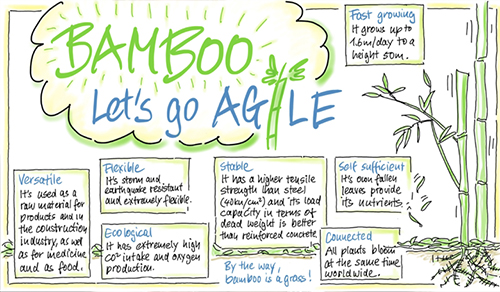 BAMBOO
Let's go AGILE
Fast growing
It grows up to
1.6m/day to a
height 50m.
Versatile
It's used as a
raw material for
products and in
the construction
industry, as well
as for medicine
and as food.
Flexible
It's storm and
earthquake resistant
and extremely flexible.
Ecological
It has extremely high
CO² intake and oxygen
production.
Stable
It has a higher tensile
strength than steel
(40kN/cm²) and its load
capacity in terms of
dead weight is better
than reinforced concrete
By the way,
bamboo is a grass!
Self sufficient
It's own fallen
leaves provide
its nutrients.
Connected
All plants bloom
at the same time
worldwide.